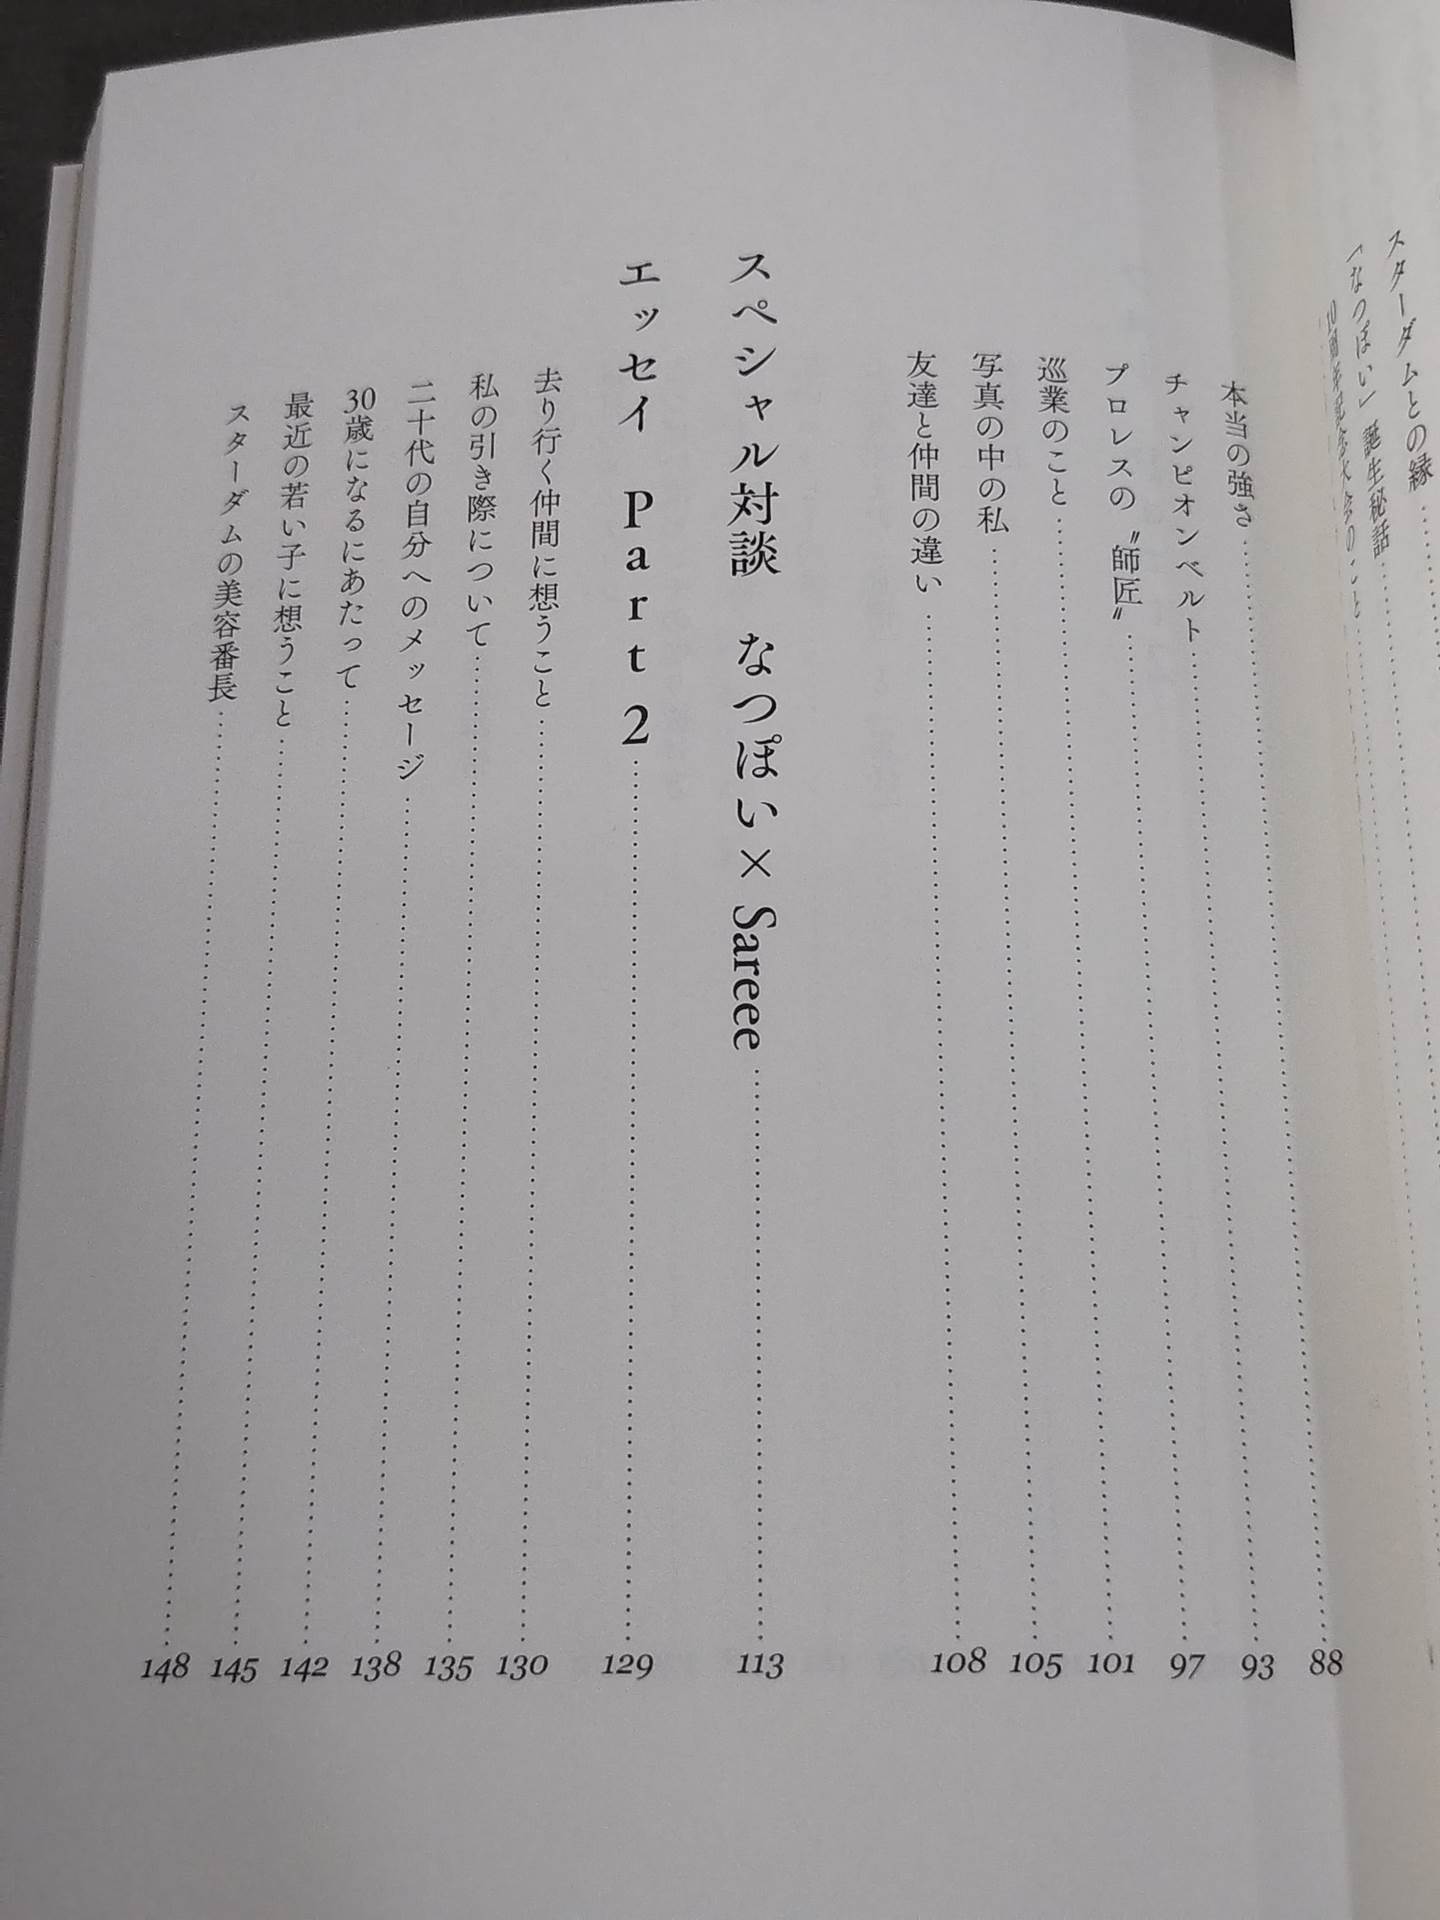 スターダムとの縁
「なつぽい」誕生秘話
10周年記念大会のこと
本当の強さ 88
チャンピオンベルト 93
プロレスの〝師匠〟 97
巡業のこと 101
写真の中の私 105
友達と仲間の違い 108
スペシャル対談 なつぽい×Sareee 113
エッセイ Part2 129
去り行く仲間に想うこと 130
私の引き際について 135
二十代の自分へのメッセージ 138
30歳になるにあたって 142
最近の若い子に想うこと 145
スターダムの美容番長 148